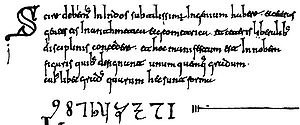 Scire debem in Indos subtilissimū ingenium habere et ceteras
gentes eis in arithmetica et geometrica et ceteris liberalib
disciplinis concedere et hoc manifestum est in nobem
figuris quib designant unumquemq gradum
cuiuslibet gradus quarum hec sunt forme
9 8 7 6 5 4 3 2 1